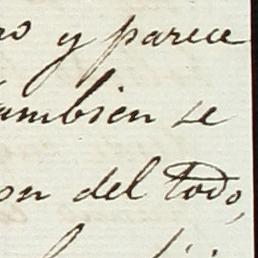 no y parece
ambien se
on del todo,